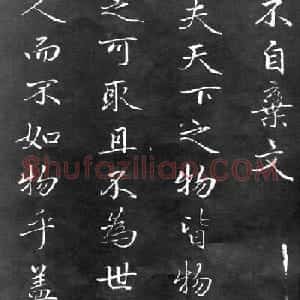 不自棄文
夫天下之物皆物
之可取且不為世
人而不如物乎蓋
Shufazilian.COM